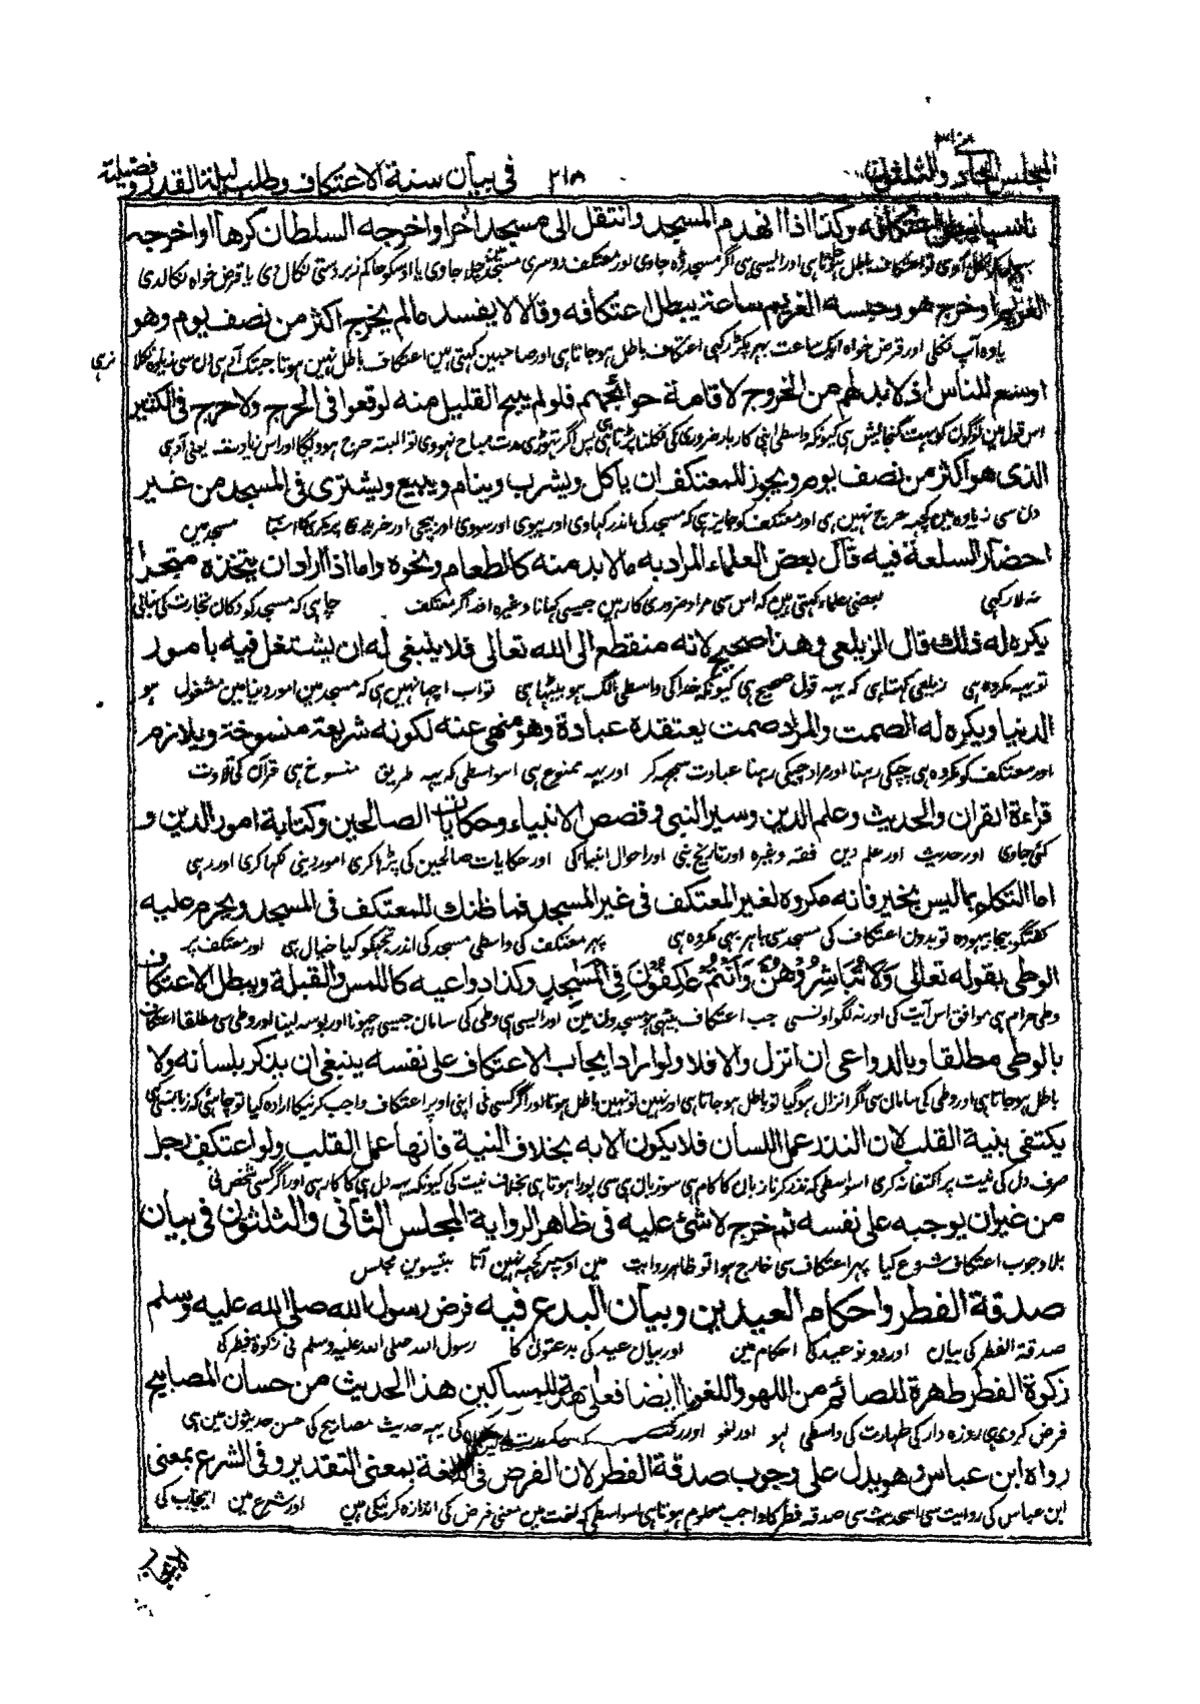 المجلس الحادى والثلثون
۲۱۸
فى بيان سنة الاعتكاف وطلب ليلة القدر وفضيلته
ناسيا يبطل اعتكافه وكذا اذا انهدم المسجد وانتقل الى مسجد اخر او اخرجه السلطان كرها او اخرجه
باطل ہوتا ہی اور ایسی ہی اگر مسجد ڈہ جاوی اور معتکف دوسری مسجد میں چلا جاوی یا اوسکو حاکم زبردستی نکال دی یا قرض خواہ نکالدی
الغريم او خرج هو وحبسه الغريم ساعة يبطل اعتكافه وقالا لا يفسد مالم يخرج اكثر من نصف يوم وهو
یا وہ آپ نکلی اور قرض خواہ ایک ساعت بہر پکڑ رکہی اعتکاف باطل ہو جاتا ہی اور صاحبین کہتی ہین اعتکاف باطل نہین ہوتا جبتک آدہی دن سی زیادہ نکلا نرہی
اوسع للناس اذ لا بد لهم من الخروج لاقامة حوائجهم فلو لم يبح القليل منه لوقعوا فى الحرج ولا حرج فى الكثير
اس قول مین لوگون کو بہت گنجایش ہی کیونکہ واسطی اپنی کاربار ضروری کی نکلنا پڑتا ہی پس اگر تہوڑی مدت مباح نہووی تو البتہ حرج ہوویگا اور اس زیادہ مدت یعنی آدہی
الذى هو اكثر من نصف يوم ويجوز للمعتكف ان ياكل ويشرب وينام ويبيع ويشترى فى المسجد من غير
دن سی زیادہ مین کچہہ حرج نہین ہی اور معتکف کو جایز ہی کہ مسجد کی اندر کہاوی اور پیوی اور سووی اور بیچی اور خریدی پر بکری کا اسباب مسجد مین
احضار السلعة فيه قال بعض العلماء المراد به مالا بد منه كالطعام ونحوه واما اذا اراد ان يتخذه متجرا
نہ لا رکہی بعضی علماء کہتی ہین کہ اس سی مراد ضروری کار ہین جیسی کہانا وغیرہ اور اگر معتکف چاہی کہ مسجد کو دکان تجارت کی بنالی
يكره له ذلك قال الزيلعى وهذا صحيح لانه منقطع الى الله تعالى فلا ينبغى له ان يشتغل فيه بامور
تو یہہ مکروہ ہی زیلعی کہتا ہی کہ یہہ قول صحیح ہی کیونکہ خدا کی واسطی الگ ہو بیٹہا ہی تو اب اچہا نہین ہی کہ مسجد مین امور دنیا مین مشغول ہو
الدنيا ويكره له الصمت والمراد صمت يعتقده عبادة وهو منهى عنه لكونه شريعة منسوخة ويلازم
اور معتکف کو مکروہ ہی چپکی رہنا اور مراد چپکی رہنا عبادت سمجہہ کر اور یہہ ممنوع ہی اسواسطی کہ یہہ طریق منسوخ ہی قرآن کی تلاوت
قراءة القران والحديث وعلم الدين وسير النبى وقصص الانبياء وحكايات الصالحين وكتابة امور الدين و
کئی جاوی اور حدیث اور علم دین فقہ وغیرہ اور تاریخ نبی اور احوال انبیا کی اور حکایات صالحین کی پڑہا کری امور دینی لکہا کری اور رہی
اما التكلم بما ليس بخير فانه مكروه لغير المعتكف فى غير المسجد فما ظنك للمعتكف فى المسجد ويحرم عليه
گفتگو بیجا بیہودہ تو بدون اعتکاف کی مسجد سی باہر بہی مکروہ ہی پہر معتکف کی واسطی مسجد کی اندر تجہکو کیا خیال ہی اور معتکف پر
الوطى بقوله تعالى وَلَا تُبَاشِرُوْهُنَّ وَاَنْتُمْ عٰكِفُوْنَ فِى الْمَسٰجِدِ وكذا دواعيه كاللمس والقبلة ويبطل الاعتكاف
وطی حرام ہی موافق اس آیت کی اور نہ لگو اونسی جب اعتکاف بیٹہی ہو مسجدون مین اور ایسی ہی وطی کی سامان جیسی چہونا اور بوسہ لینا اور وطی سی مطلقا اعتکاف
بالوطى مطلقا وبالدواعى ان انزل والا فلا ولو اراد ايجاب الاعتكاف على نفسه ينبغى ان يذكر بلسانه ولا
باطل ہو جاتا ہی اور وطی کی سامان سی اگر انزال ہو گیا تو باطل ہو جاتا ہی اور نہین تو نہین باطل ہوتا اور اگر کسی نی اپنی اوپر اعتکاف واجب کرنیکا ارادہ کیا تو چاہئی کہ زبانسی کہی
يكتفى بنية القلب لان النذر عمل اللسان فلا يكون الا به بخلاف النية فانها عمل القلب ولو اعتكف رجل
صرف دل کی نیت پر اکتفا نہ کری اسواسطی کہ نذر کرنا زبان کا کام ہی سو زبان ہی سی پورا ہوتا ہی بخلاف نیت کی کیونکہ یہہ دل ہی کا کار ہی اور اگر کسی شخص نی
من غير ان يوجبه على نفسه ثم خرج لا شئ عليه فى ظاهر الرواية المجلس الثانى والثلثون فى بيان
بلا وجوب اعتکاف شروع کیا پہر اعتکاف سی خارج ہوا تو ظاہر روایت مین اوسپر کچہہ نہین آتا بتیسوین مجلس
صدقة الفطر واحكام العيدين وبيان البدع فيه فرض رسول الله صلى الله عليه وسلم
صدقۃ الفطر کی بیان اور دونو عید کی احکام مین اور بیان عید کی بدعتون کا رسول اللہ صلی اللہ علیہ وسلم نی زکوۃ فطر کی
زكوة الفطر طهرة للصائم من اللهو واللغو للمساكين هذا الحديث من حسان المصابيح
فرض کر دی ہی روزہ دار کی طہارت کی واسطی لہو اور لغو اور کی یہہ حدیث مصابیح کی حسن حدیثون مین ہی
رواه ابن عباس وهو يدل على وجوب صدقة الفطر لان الفرض فى اللغة بمعنى التقدير وفى الشرع بمعنى
ابن عباس کی روایت سی اسحدیث سی صدقہ فطر کا واجب معلوم ہوتا ہی اسواسطی کہ لغت مین معنی فرض کی اندازہ کرنیکی ہین اور شرع مین ایجاب کی